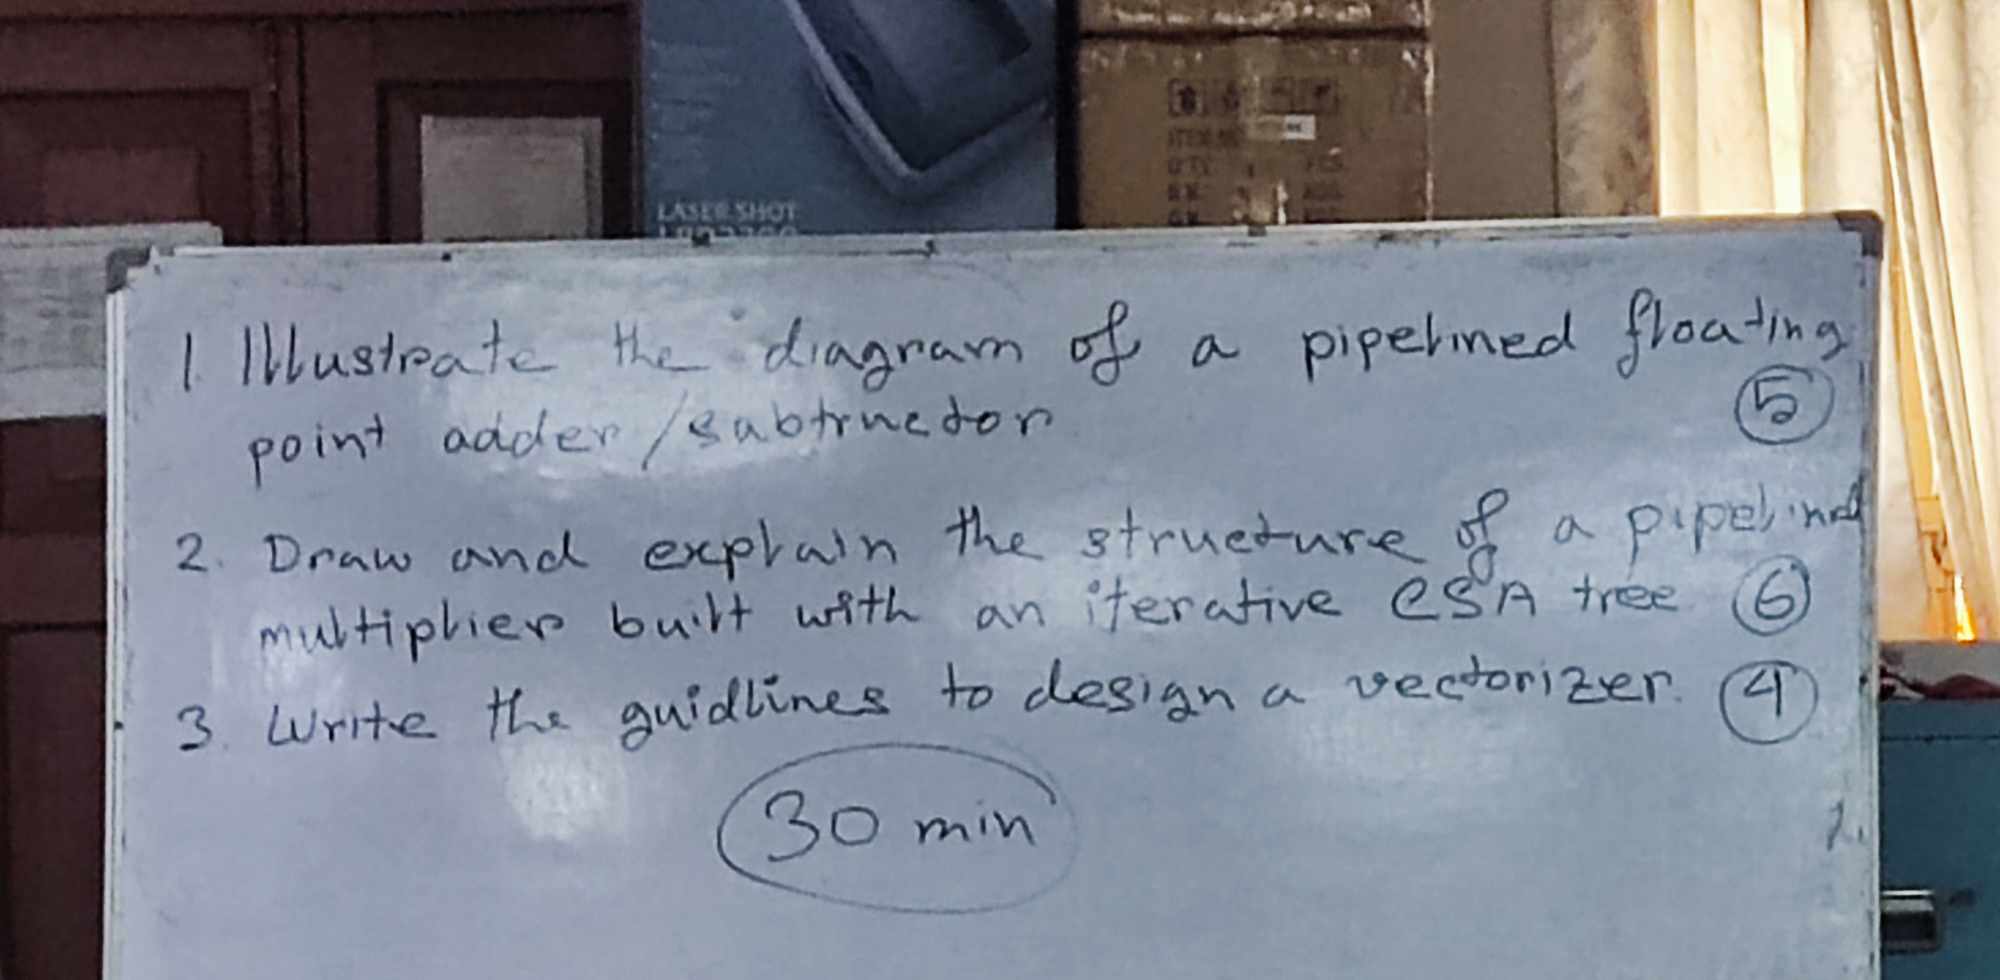 LASER SHOT
1. Illustrate the diagram of a pipelined floating
point adder/sabtructor
5
2. Draw and explain the structure of a pipelined
multiplier built with an iterative CSA tree 6
3. Write the guidlines to design a vectorizer. 4
30 min